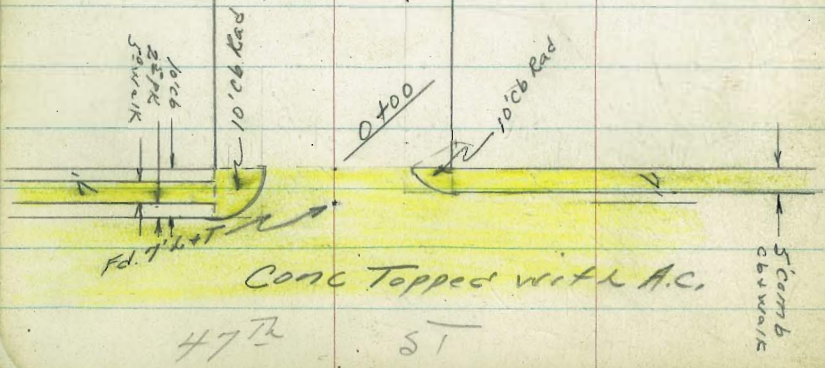 10' cb
2½ PK
5° walk
10' Cb Rad
0+00
10' Cb Rad
7'
7'
Fd. 7' L+T
Conc Topped with A.C.
5' comb
cb + walk
47Th ST